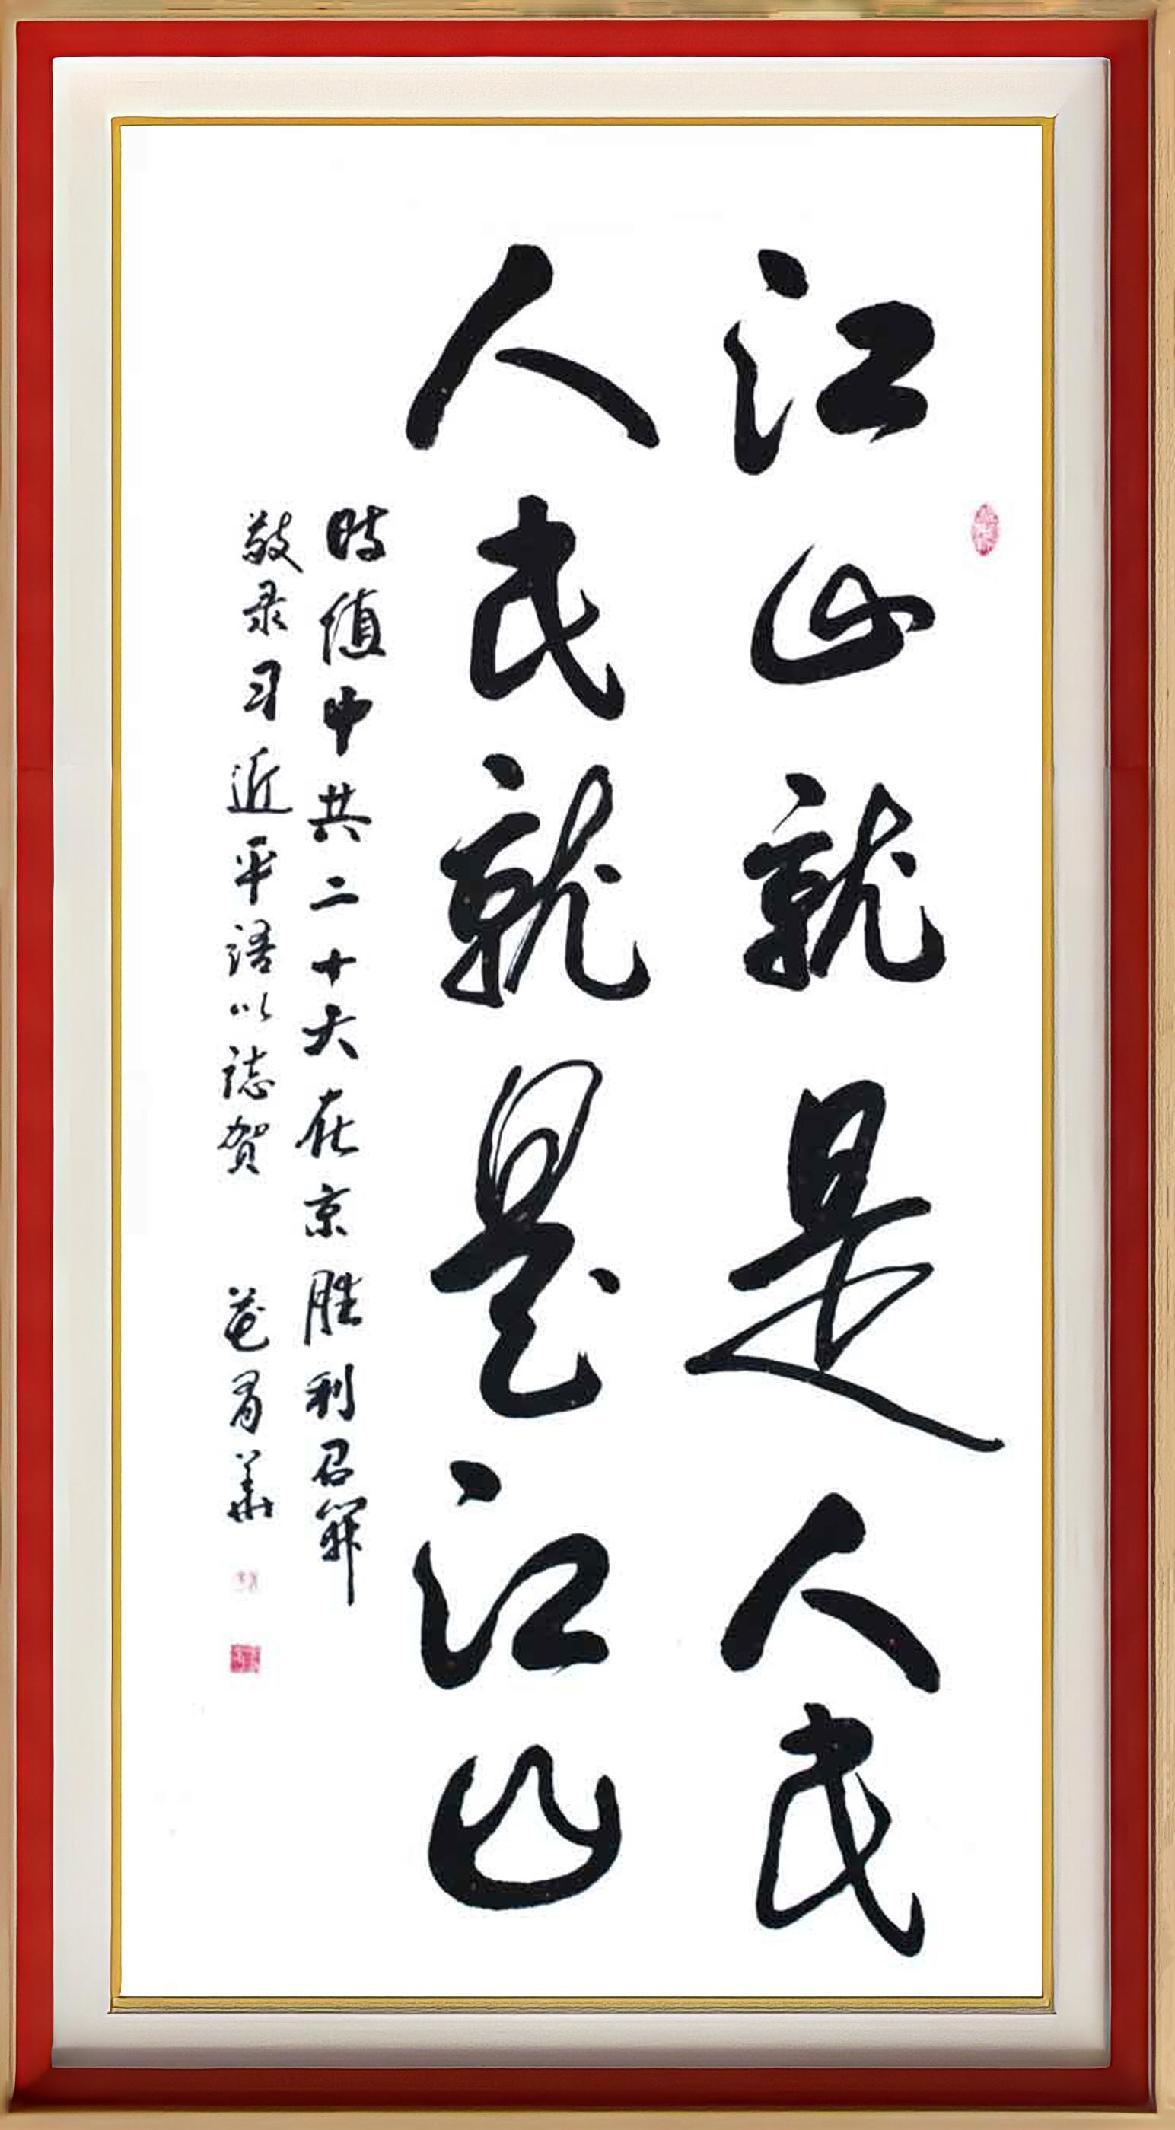 江山就是人民
人民就是江山
时值中共二十大在京胜利召开
敬录习近平语以志贺